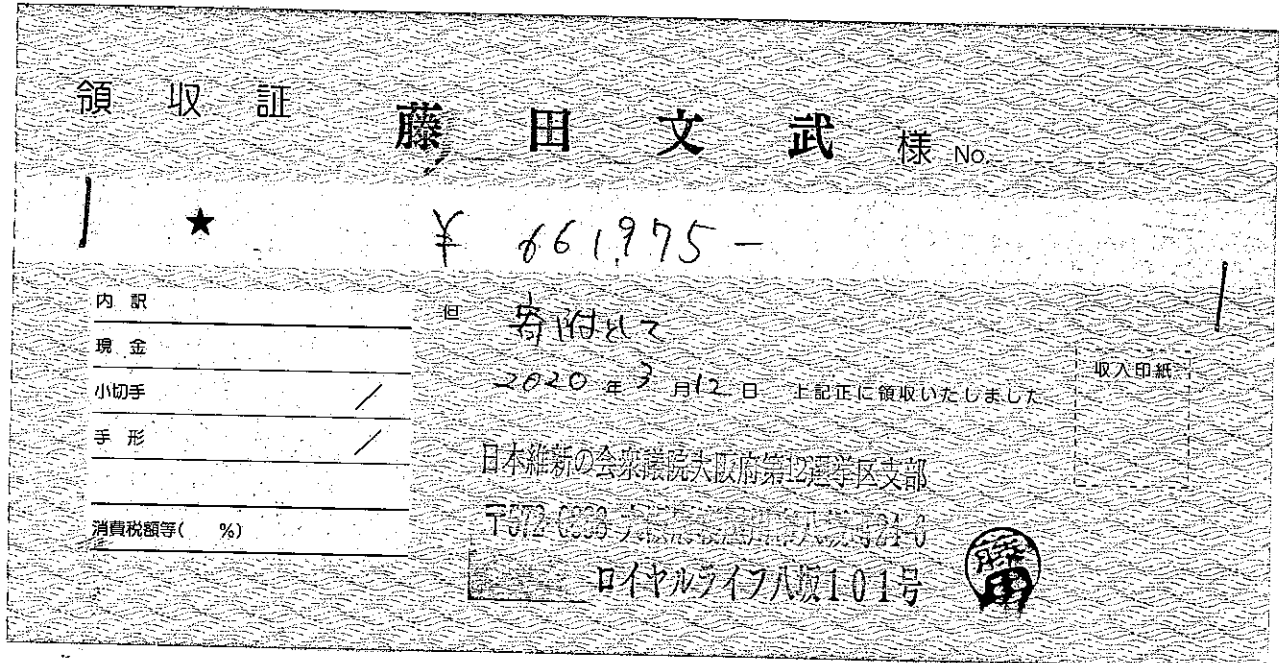 領収証 藤田文武 様 No.
★ ¥ 661,975-
内訳
現金
小切手 /
手形 /
消費税額等( %)
但 寄附として
2020年3月12日 上記正に領収いたしました
収入印紙
日本維新の会衆議院大阪府第12選挙区支部
〒572-0838 24-6
ロイヤルライフ八坂101号
藤田